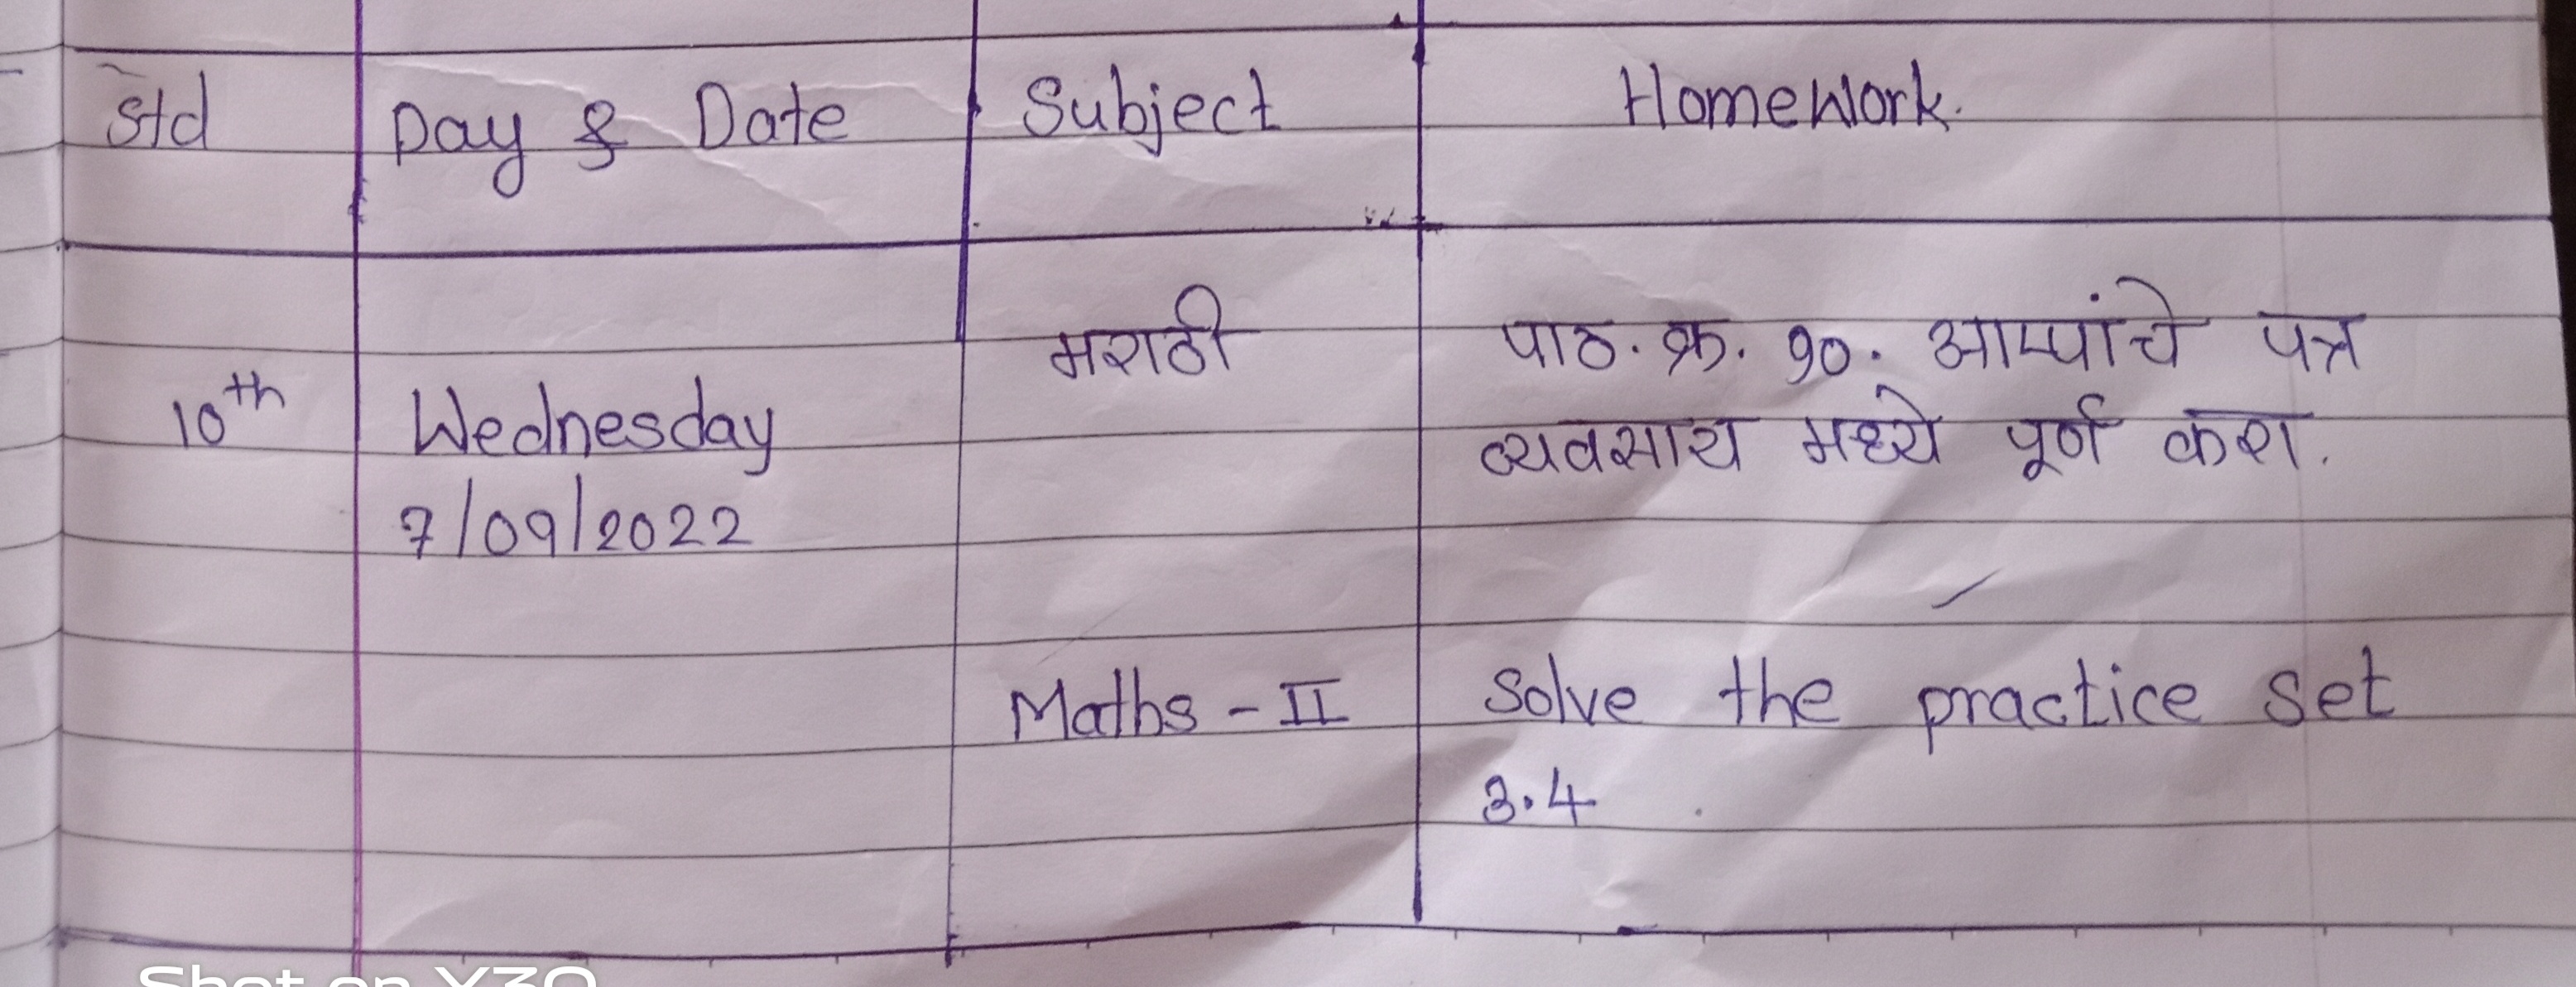 Std Day & Date Subject Homework.
मराठी पाठ. क्र. १०. आप्पांचे पत्र
10th Wednesday व्यवसाय मध्ये पूर्ण करा.
7/09/2022
Maths - II Solve the practice set
3.4
Shot on Y30